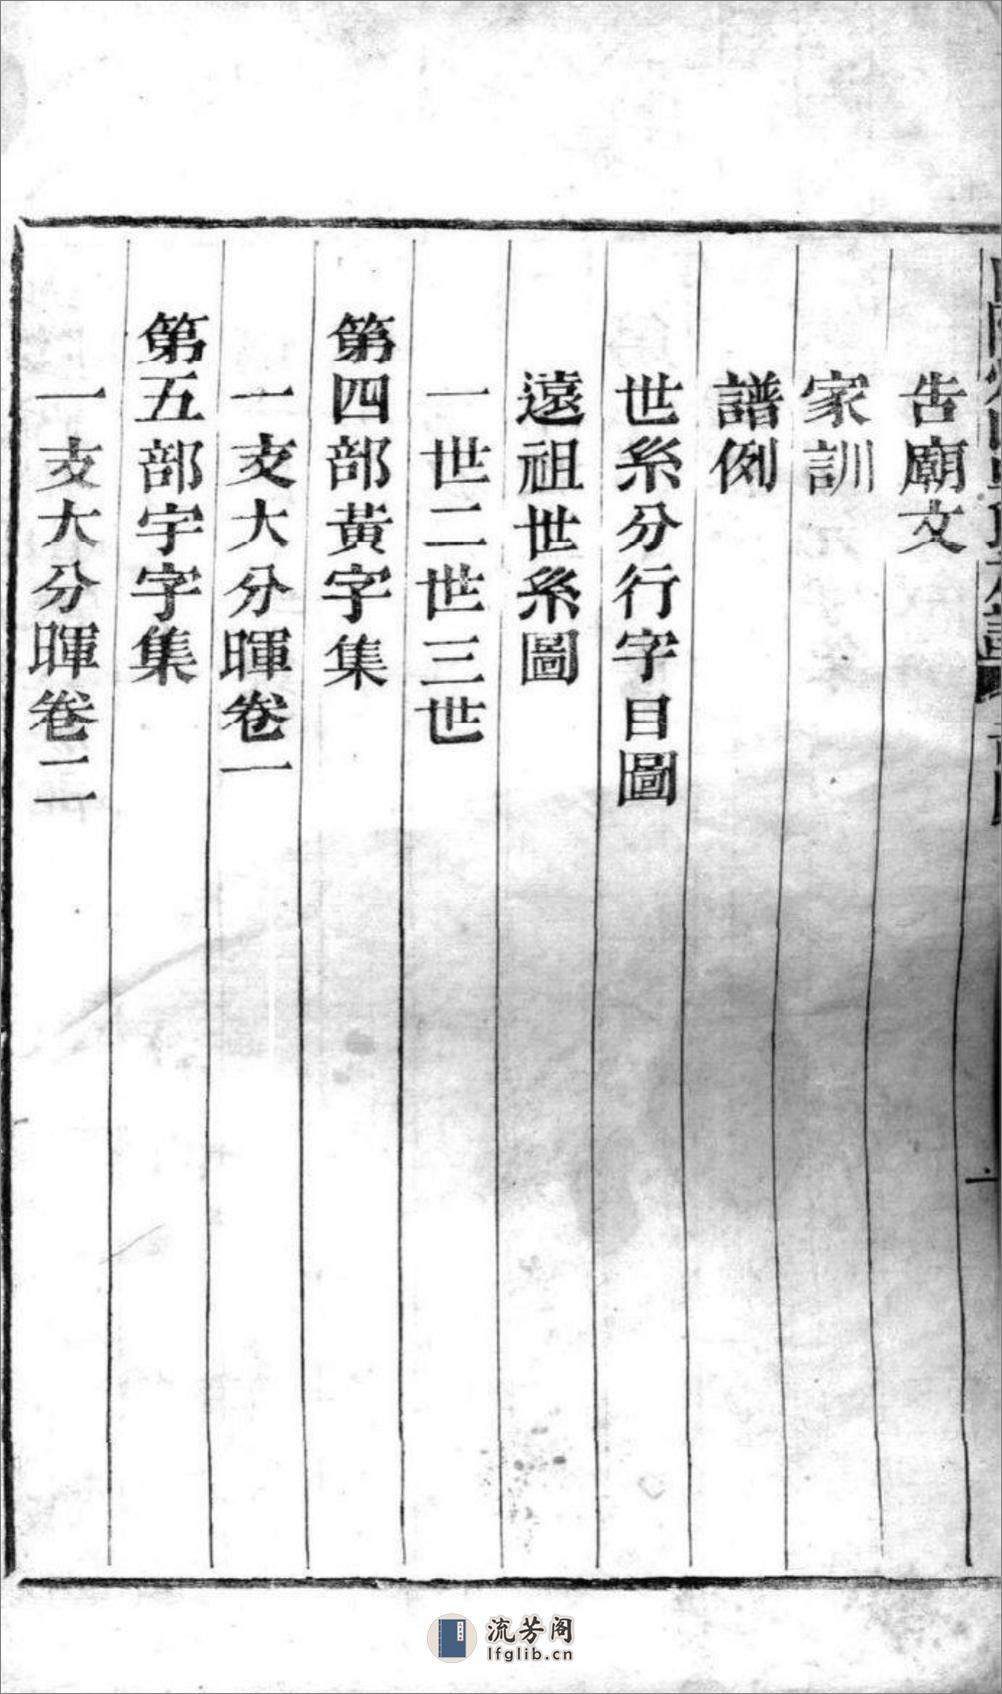 告廟文
家訓
譜例
世系分行字目圖
遠祖世系圖
一世二世三世
第四部黃字集
一支大分暉卷一
第五部宇字集
一支大分暉卷二
流芳阁
lfglib.cn